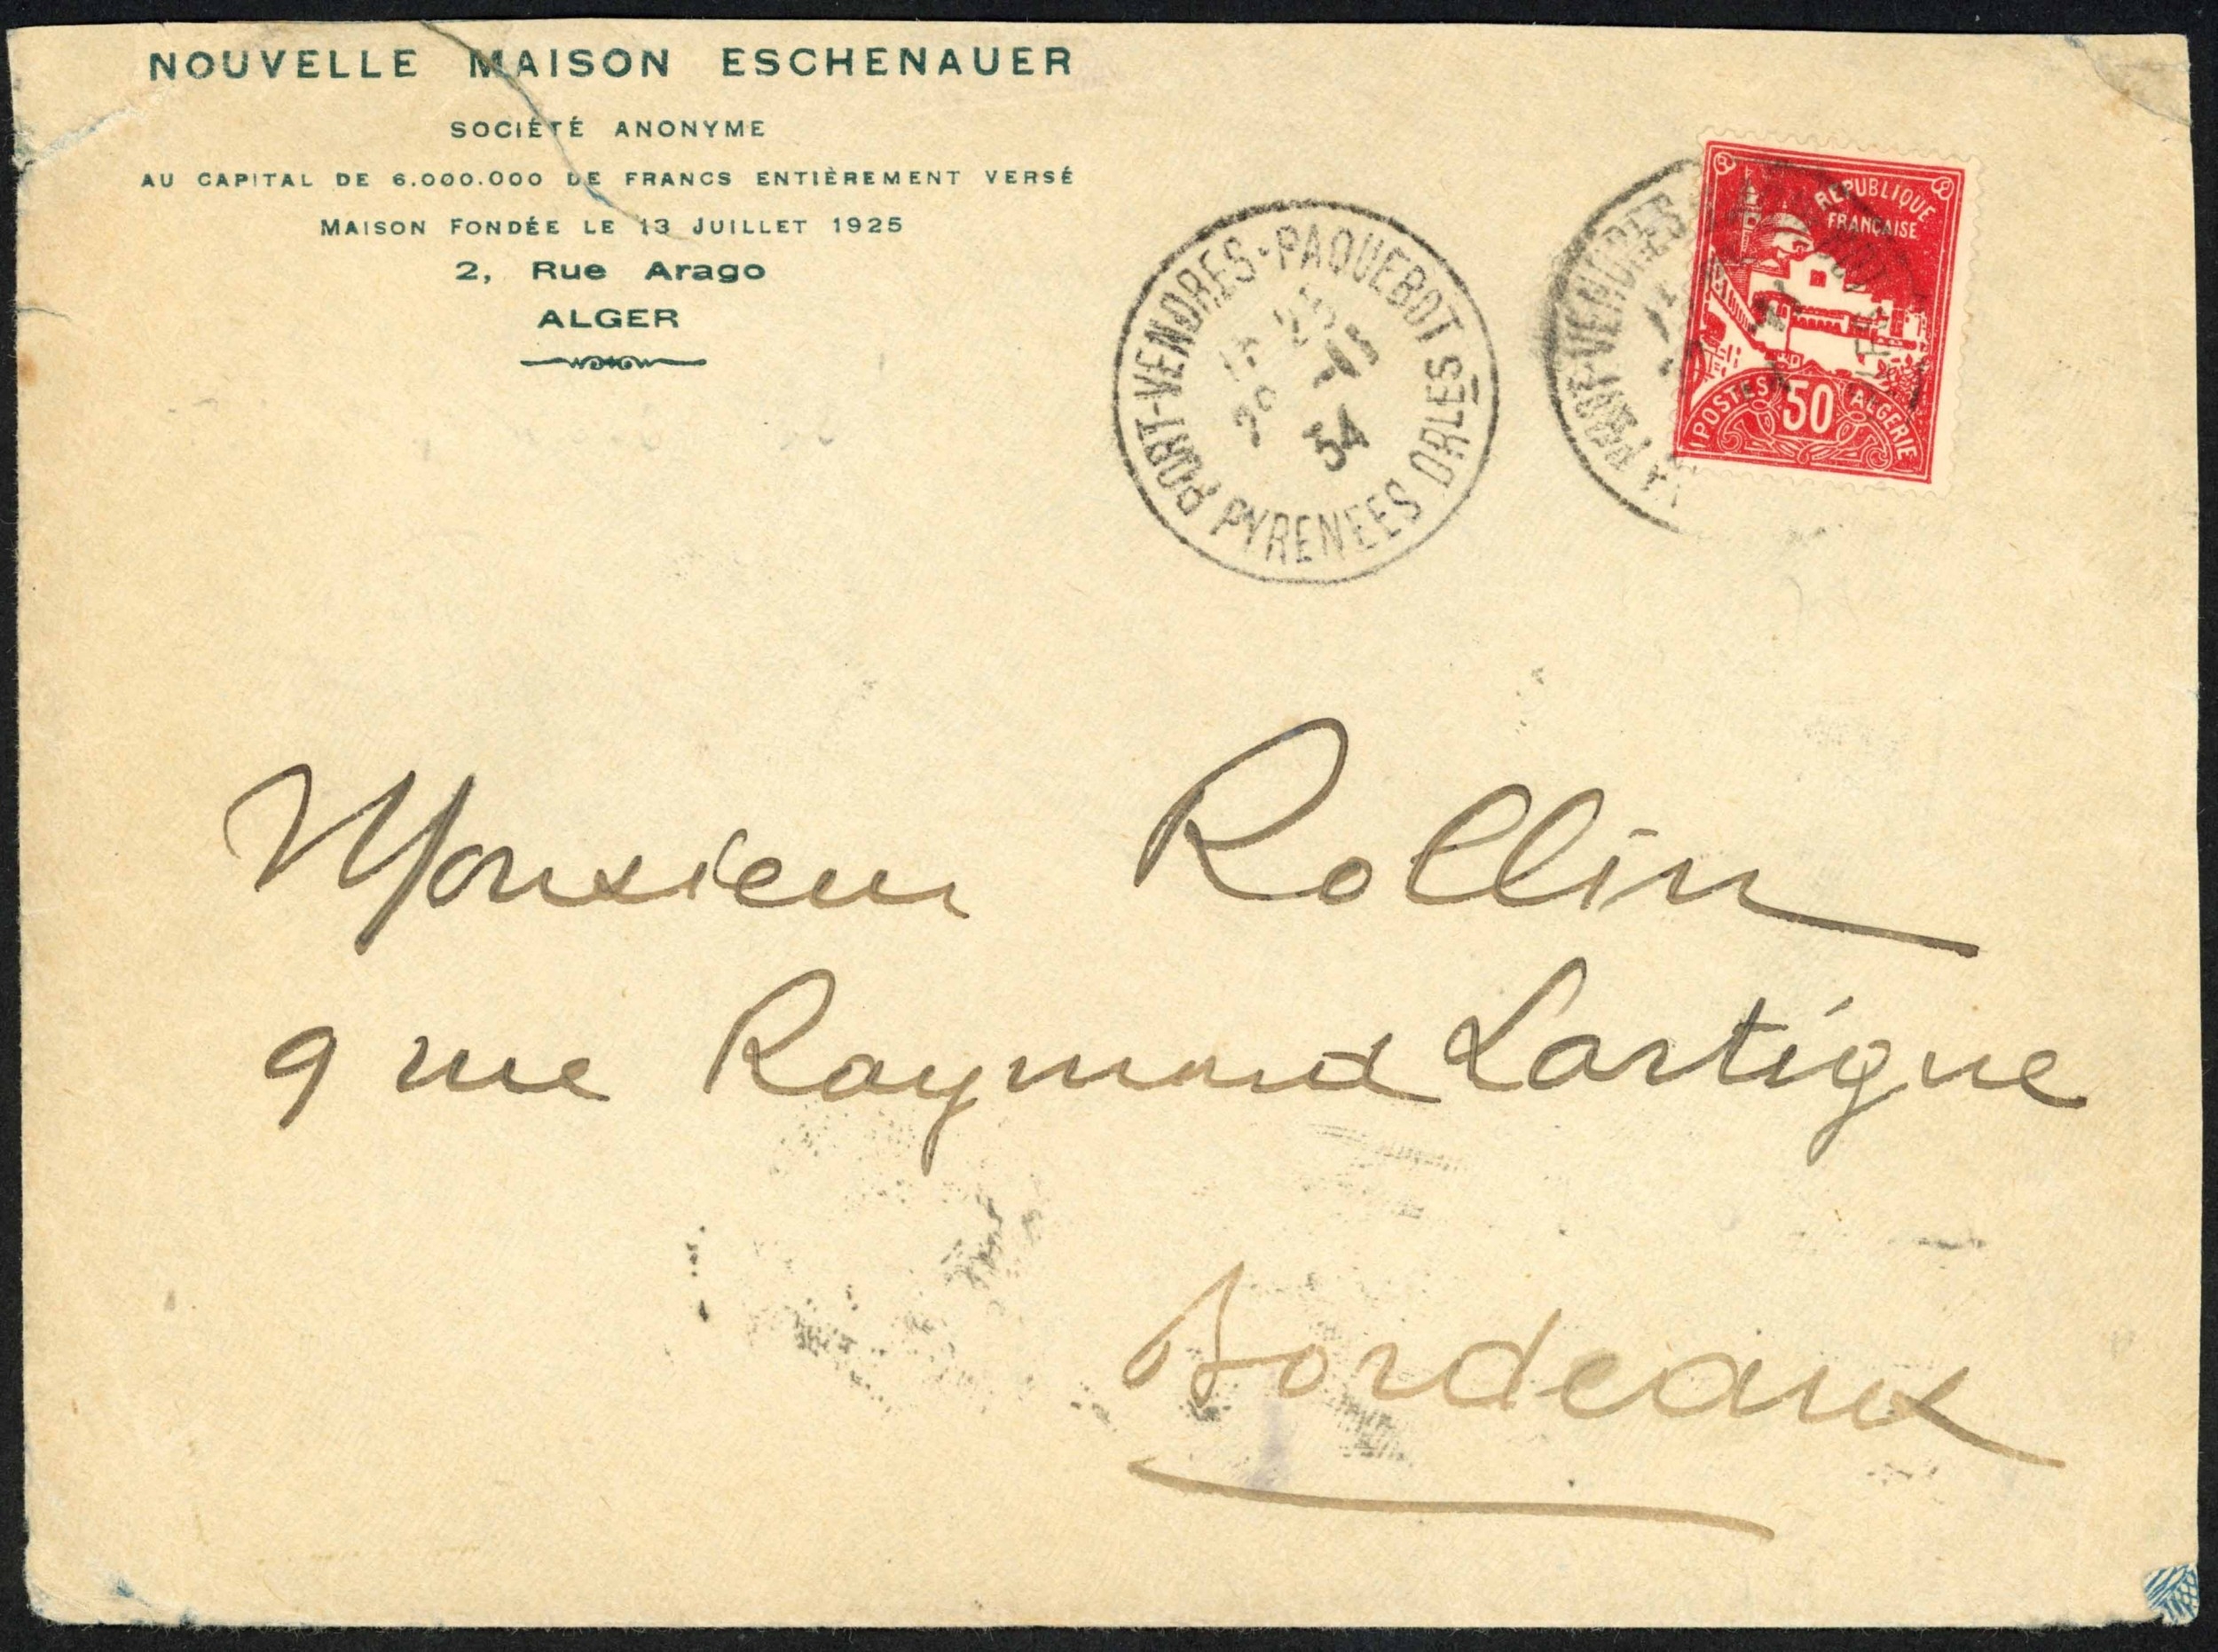 NOUVELLE MAISON ESCHENAUER
SOCIÉTÉ ANONYME
AU CAPITAL DE 6.000.000 DE FRANCS ENTIÈREMENT VERSÉ
MAISON FONDÉE LE 13 JUILLET 1925
2, Rue Arago
ALGER
PORT-VENDRES-PAQUEBOT
PYRENEES ORLES
34
REPUBLIQUE
FRANÇAISE
POSTES 50 ALGERIE
Monsieur Rollin
9 rue Raymond Lartigue
Bordeaux